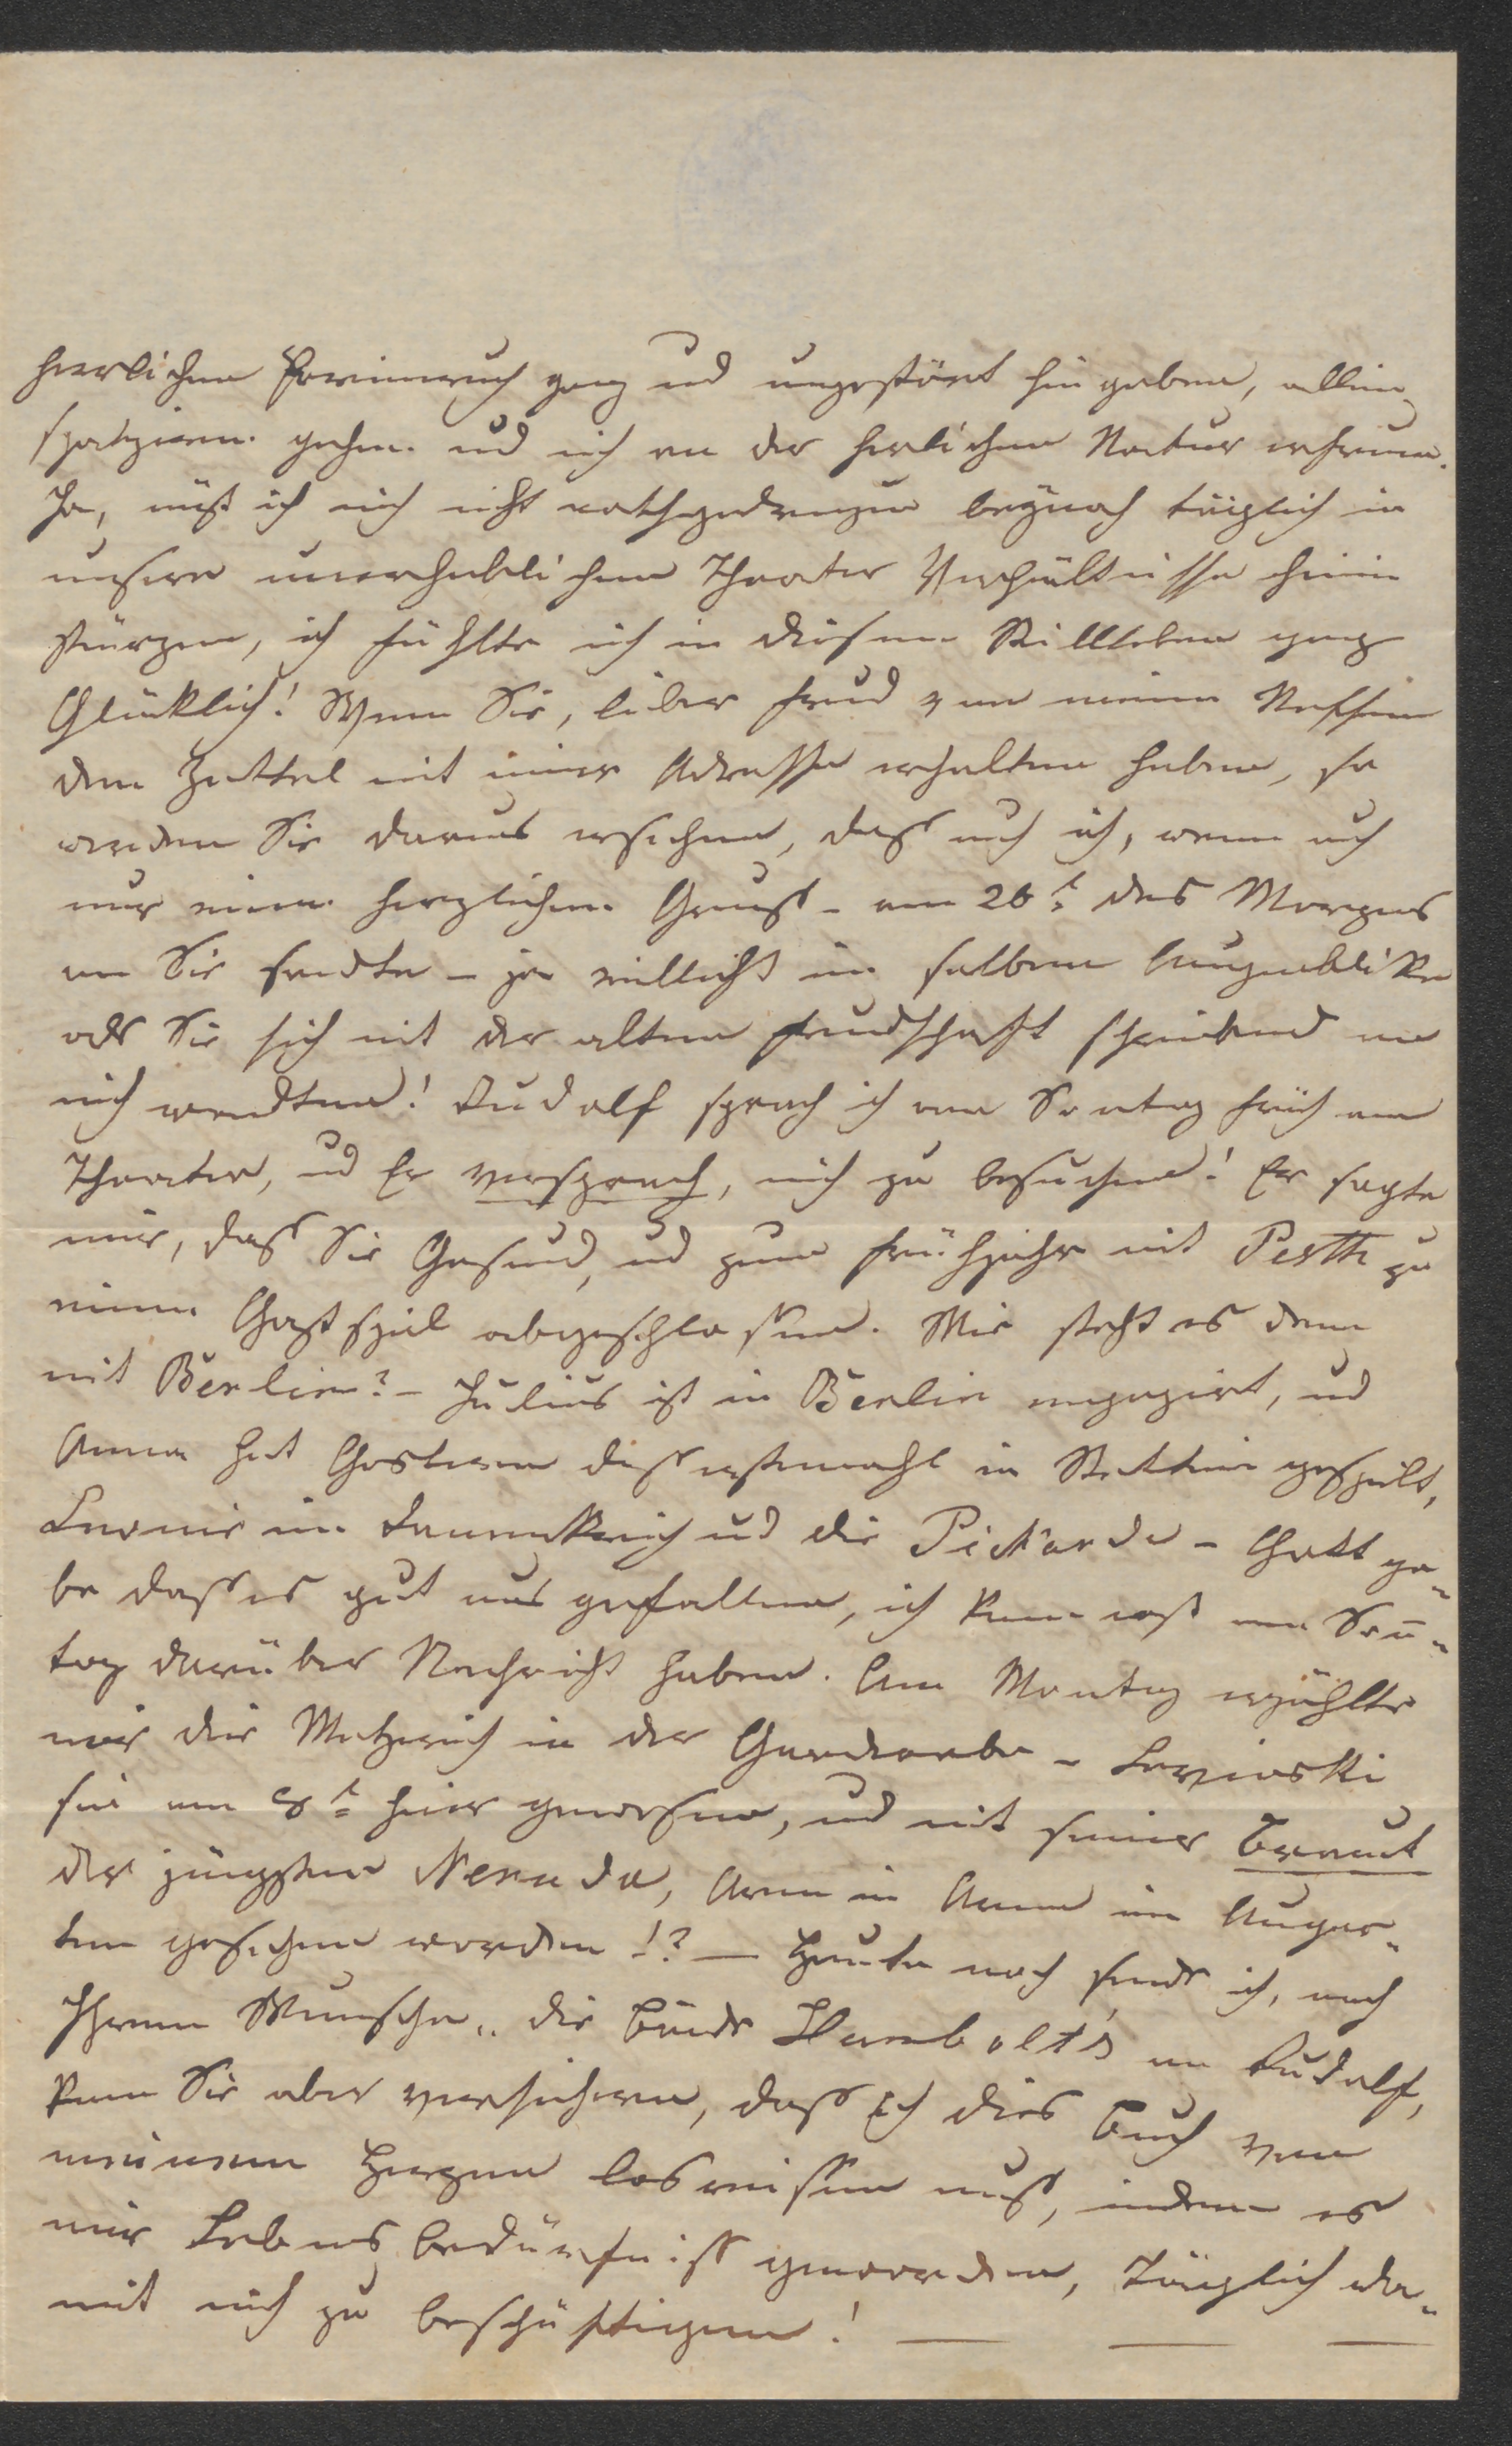 herrlichen Erinnerung ganz und ungestört hingeben, allein
spatzieren gehen und mich an der herlichen Natur erfreuen.
Ja, müßt ich mich nicht nothgedrungen beynah täglich in
unsere unerheblichen Theater Verhältnisse hinein
stürzen, ich fühlte mich in diesem Stillleben ganz
Glücklich! Wenn Sie, lieber Freund von meinem Neffen
den Zettel mit meiner Adresse erhalten haben, so
werden Sie daraus ersehen, daß auch ich, wenn auch
nur einen herzlichen Gruß - am 26t des Morgens
an Sie sendte - ja vielleicht im selben Augenblike
als Sie sich mit der alten Freundschaft schreibend an
mich wendten! Rudolf sprach ich am Sontag früh am
Theater, und Er versprach, mich zu besuchen! Er sagte
mir, daß Sie Gesund, und zum Frühjahr mit Pesth zu
einem Gastspiel abgeschlossen. Wie steht es denn
mit Berlin? - Julius ist in Berlin engagirt, und
Anna hat Gestern das erstemahl in Stettin gespielt,
Leonie im Damenkrieg und die Pickarde - Gott ge-
be daß es gut ausgefallen, ich kann erst am Son-
tag darüber Nachricht haben. Am Montag erzählte
mir die in der Garderobe - Levinski
sei am 8t hier gewesen, und mit seiner Braut
der jüngsten Neruda, Arm in Arm im Augar-
ten gesehen worden!? — Heute noch sende ich, nach
Ihrem Wunsche, die Bände Humbolt's an Rudolf,
kann Sie aber versichern, daß Ich dies Buch von
meinem Herzen losreißen muß, indem es
mir Lebensbedürfniß geworden, Täglich da-
mit mich zu beschäftigen! — — —